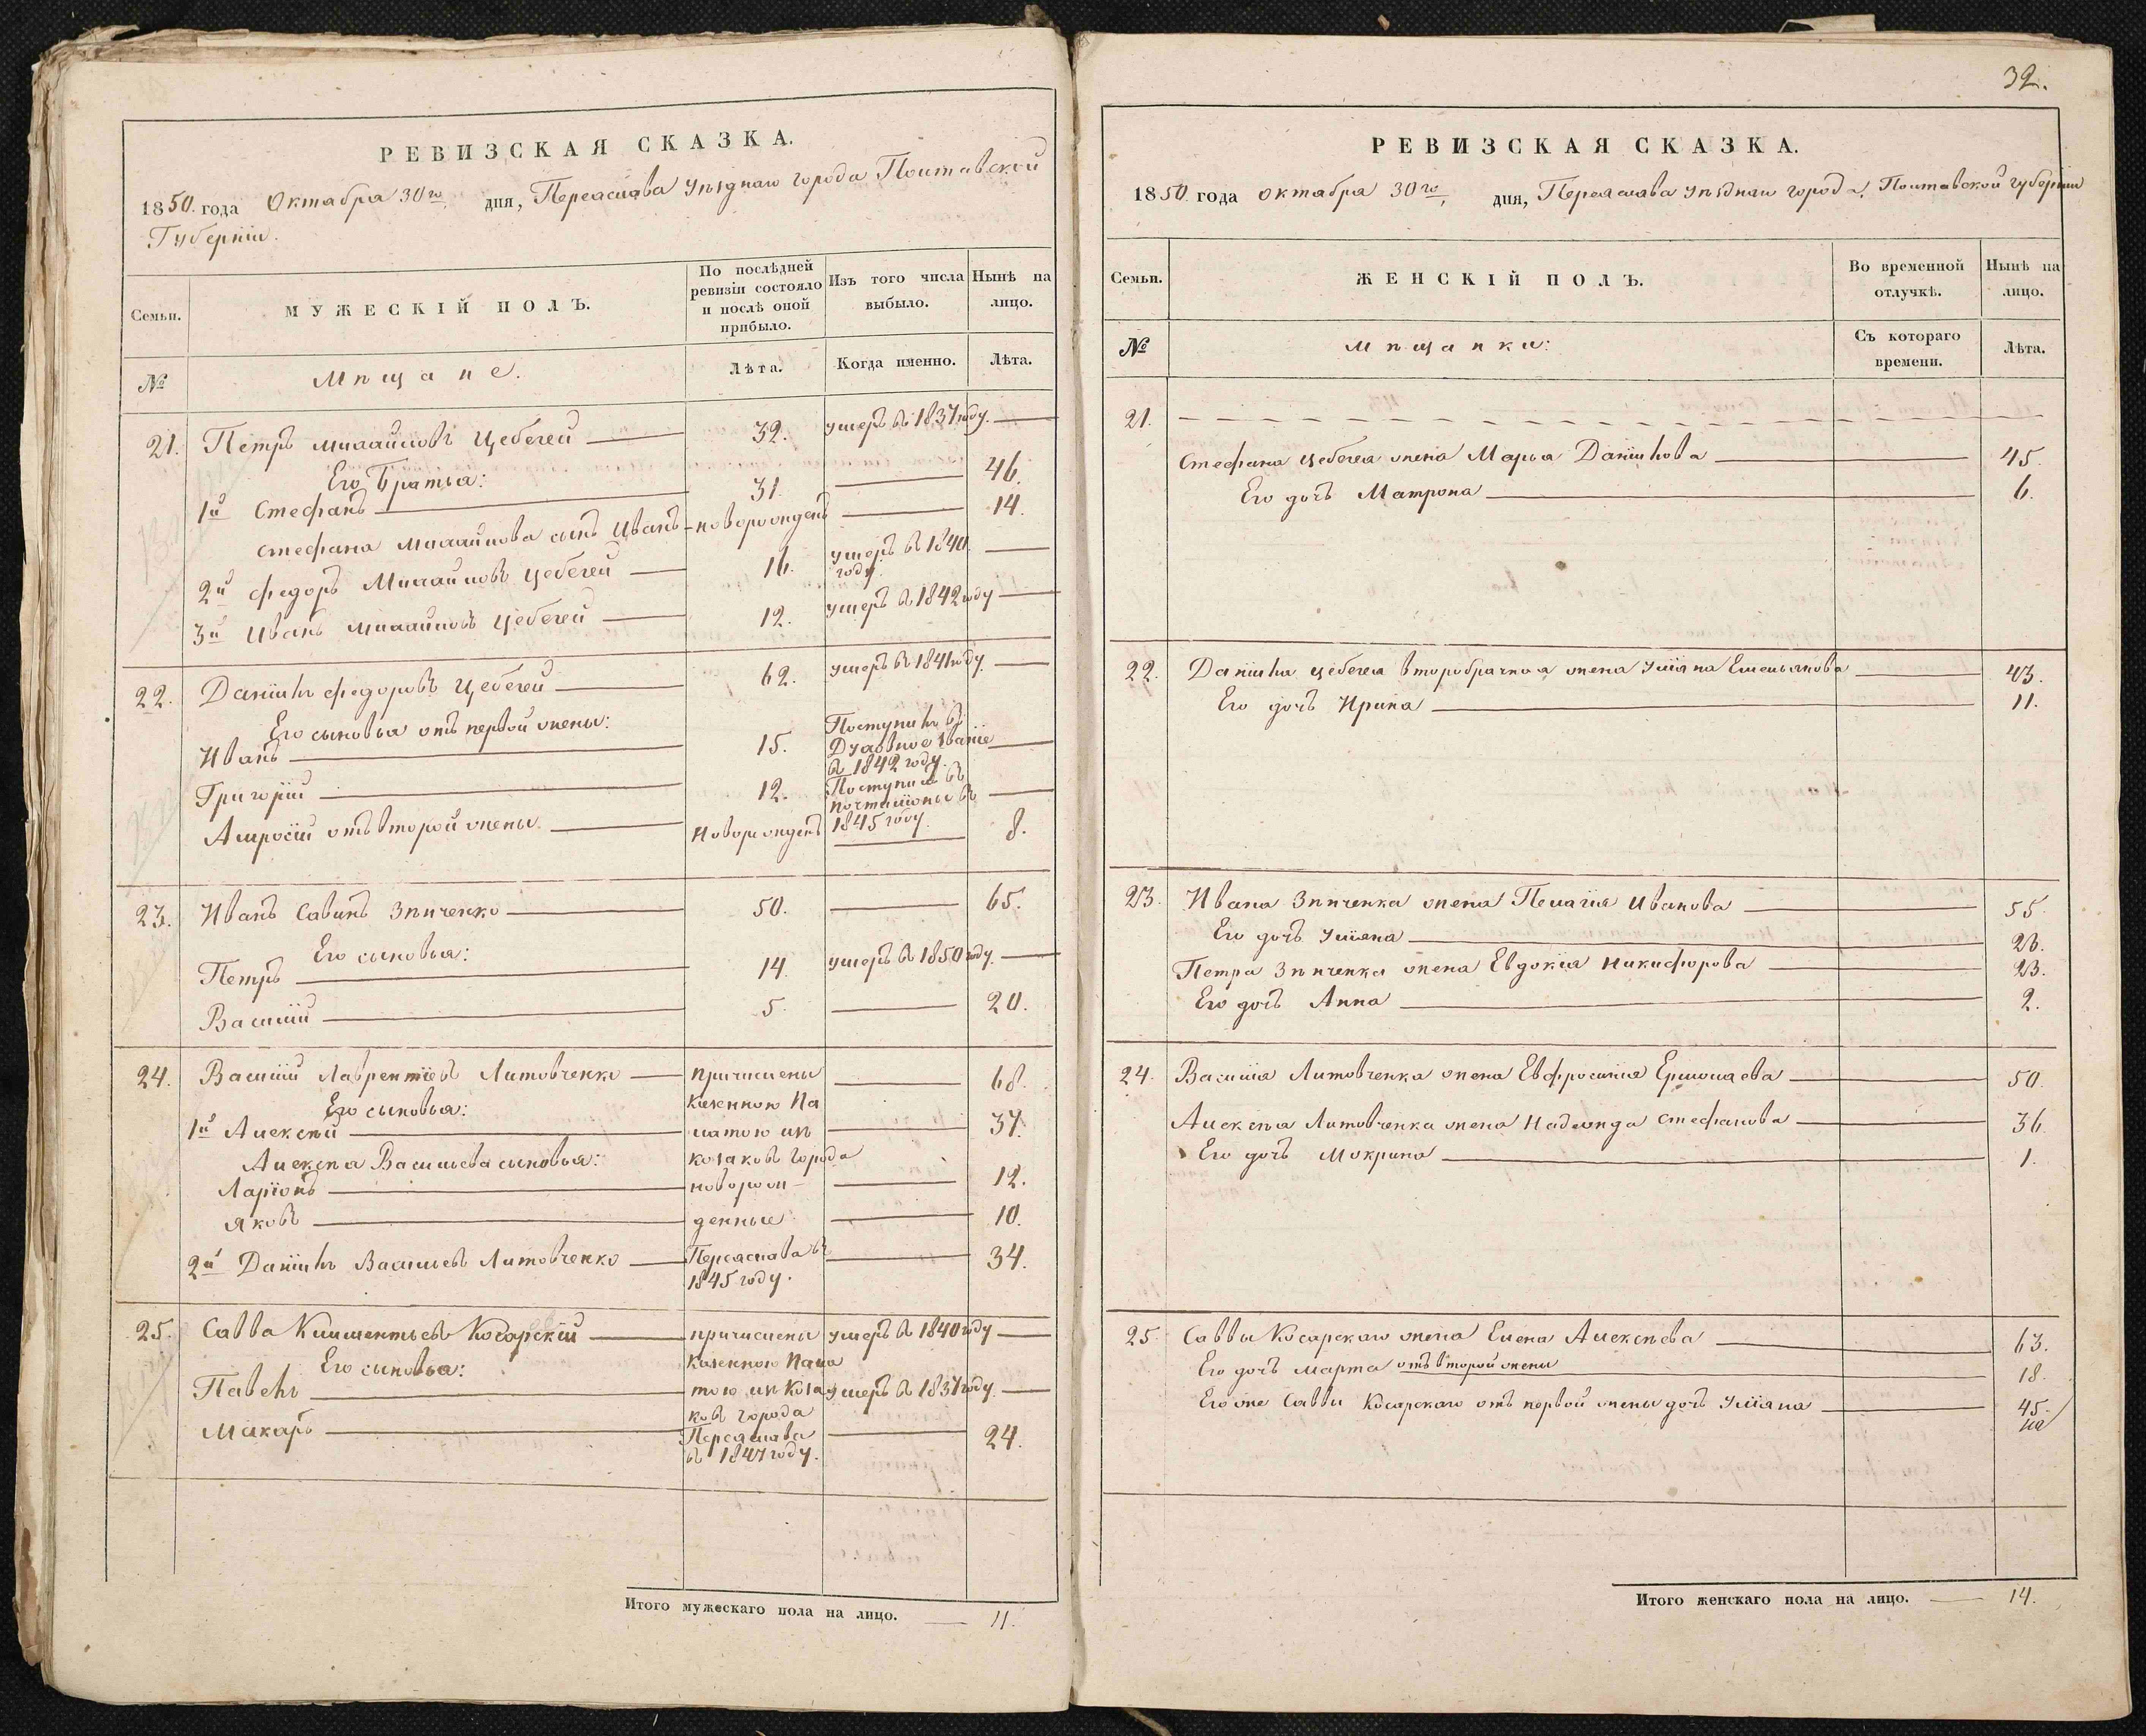 РЕВИЗСКАЯ СКАЗКА.
1850. года Октабра 30го дня, Переаслава уѣзднаго города Полтавской
Губерніи.
Семьи.
МУЖЕСКІЙ ПОЛЪ.
По послѣдней ревизіи состояло и послѣ оной прибыло.
Изъ того числа выбыло.
Нынѣ на лицо.
№
Мѣщане.
Лѣта.
Когда именно.
Лѣта.
21. Петръ Михайловъ Цебегей 32. умеръ въ 1837 году.
Его Братья:
1й Стефанъ 31. 46.
Стефана Михайлова сынъ Иванъ новорожденъ 14.
2й Федоръ Михайловъ Цебегей 16. умеръ в 1840 году.
3й Иванъ Михайловъ Цебегей 12. умеръ в 1842 году
22. Даніилъ Федоровъ Цебегей 62. умеръ въ 1841 году.
Его сыновья отъ первой жены:
Иванъ 15. Поступилъ въ Духовное званіе в 1842 году.
Григорій 12. Поступилъ въ почталіоны въ 1845 году.
Амросій отъ второй жены. Новорожденъ 8.
23. Иванъ Савинъ Зѣнченко 50. 65.
Его сыновья:
Петръ 14. умеръ в 1850 году.
Василій 5. 20.
24. Василій Лаврентіевъ Литовченко причислены 68.
Его сыновья: казенною Па
1й Алексѣй латою изъ 37.
Алексѣа Васильева сыновья: козаковъ города
Ларіонъ новорож- 12.
Яковъ денные 10.
2й Даніилъ Васильевъ Литовченко Переаслававъ 34.
1845 году.
25. Савва Климентьевъ Косарскій причислены умеръ в 1840 году
Его сыновья: казенною Пала
Павелъ тою изъ Коза умеръ в 1837 году.
ковъ города
Макаръ Переаслава 24.
въ 1847 году.
Итого мужескаго пола на лицо. 11.
32.
РЕВИЗСКАЯ СКАЗКА.
1850 года Октабра 30го, дня, Переаслава уѣзднаго города, Полтавской губерніи
Семьи.
ЖЕНСКІЙ ПОЛЪ.
Во временной отлучкѣ.
Нынѣ на лицо.
№
Мѣщанки:
Съ котораго времени.
Лѣта.
21.
Стефана Цебегеа жена Марьа Данилова 45.
Его дочь Матрона 6.
22. Даніила Цебегеа второбрачная жена Уліяна Емельянова 43.
Его дочь Ирина 11.
23. Ивана Зѣнченка жена Пелагія Иванова 55.
Его дочь Уліяна 26.
Петра Зѣнченка жена Евдокіа Никифорова 23.
Его дочь Анна 2.
24. Василіа Литовченка жена Евфросиніа Ермолаева 50.
Алексѣа Литовченка жена Надежда Стефанова 36.
Его дочь Мокрина 1.
25. Саввы Косарскаго жена Елена Алексѣева 63.
Его дочь Марта отъ второй жены 18.
Его же Саввы Косарскаго отъ первой жены дочь Уліяна 45.
Итого женскаго пола на лицо. 14.